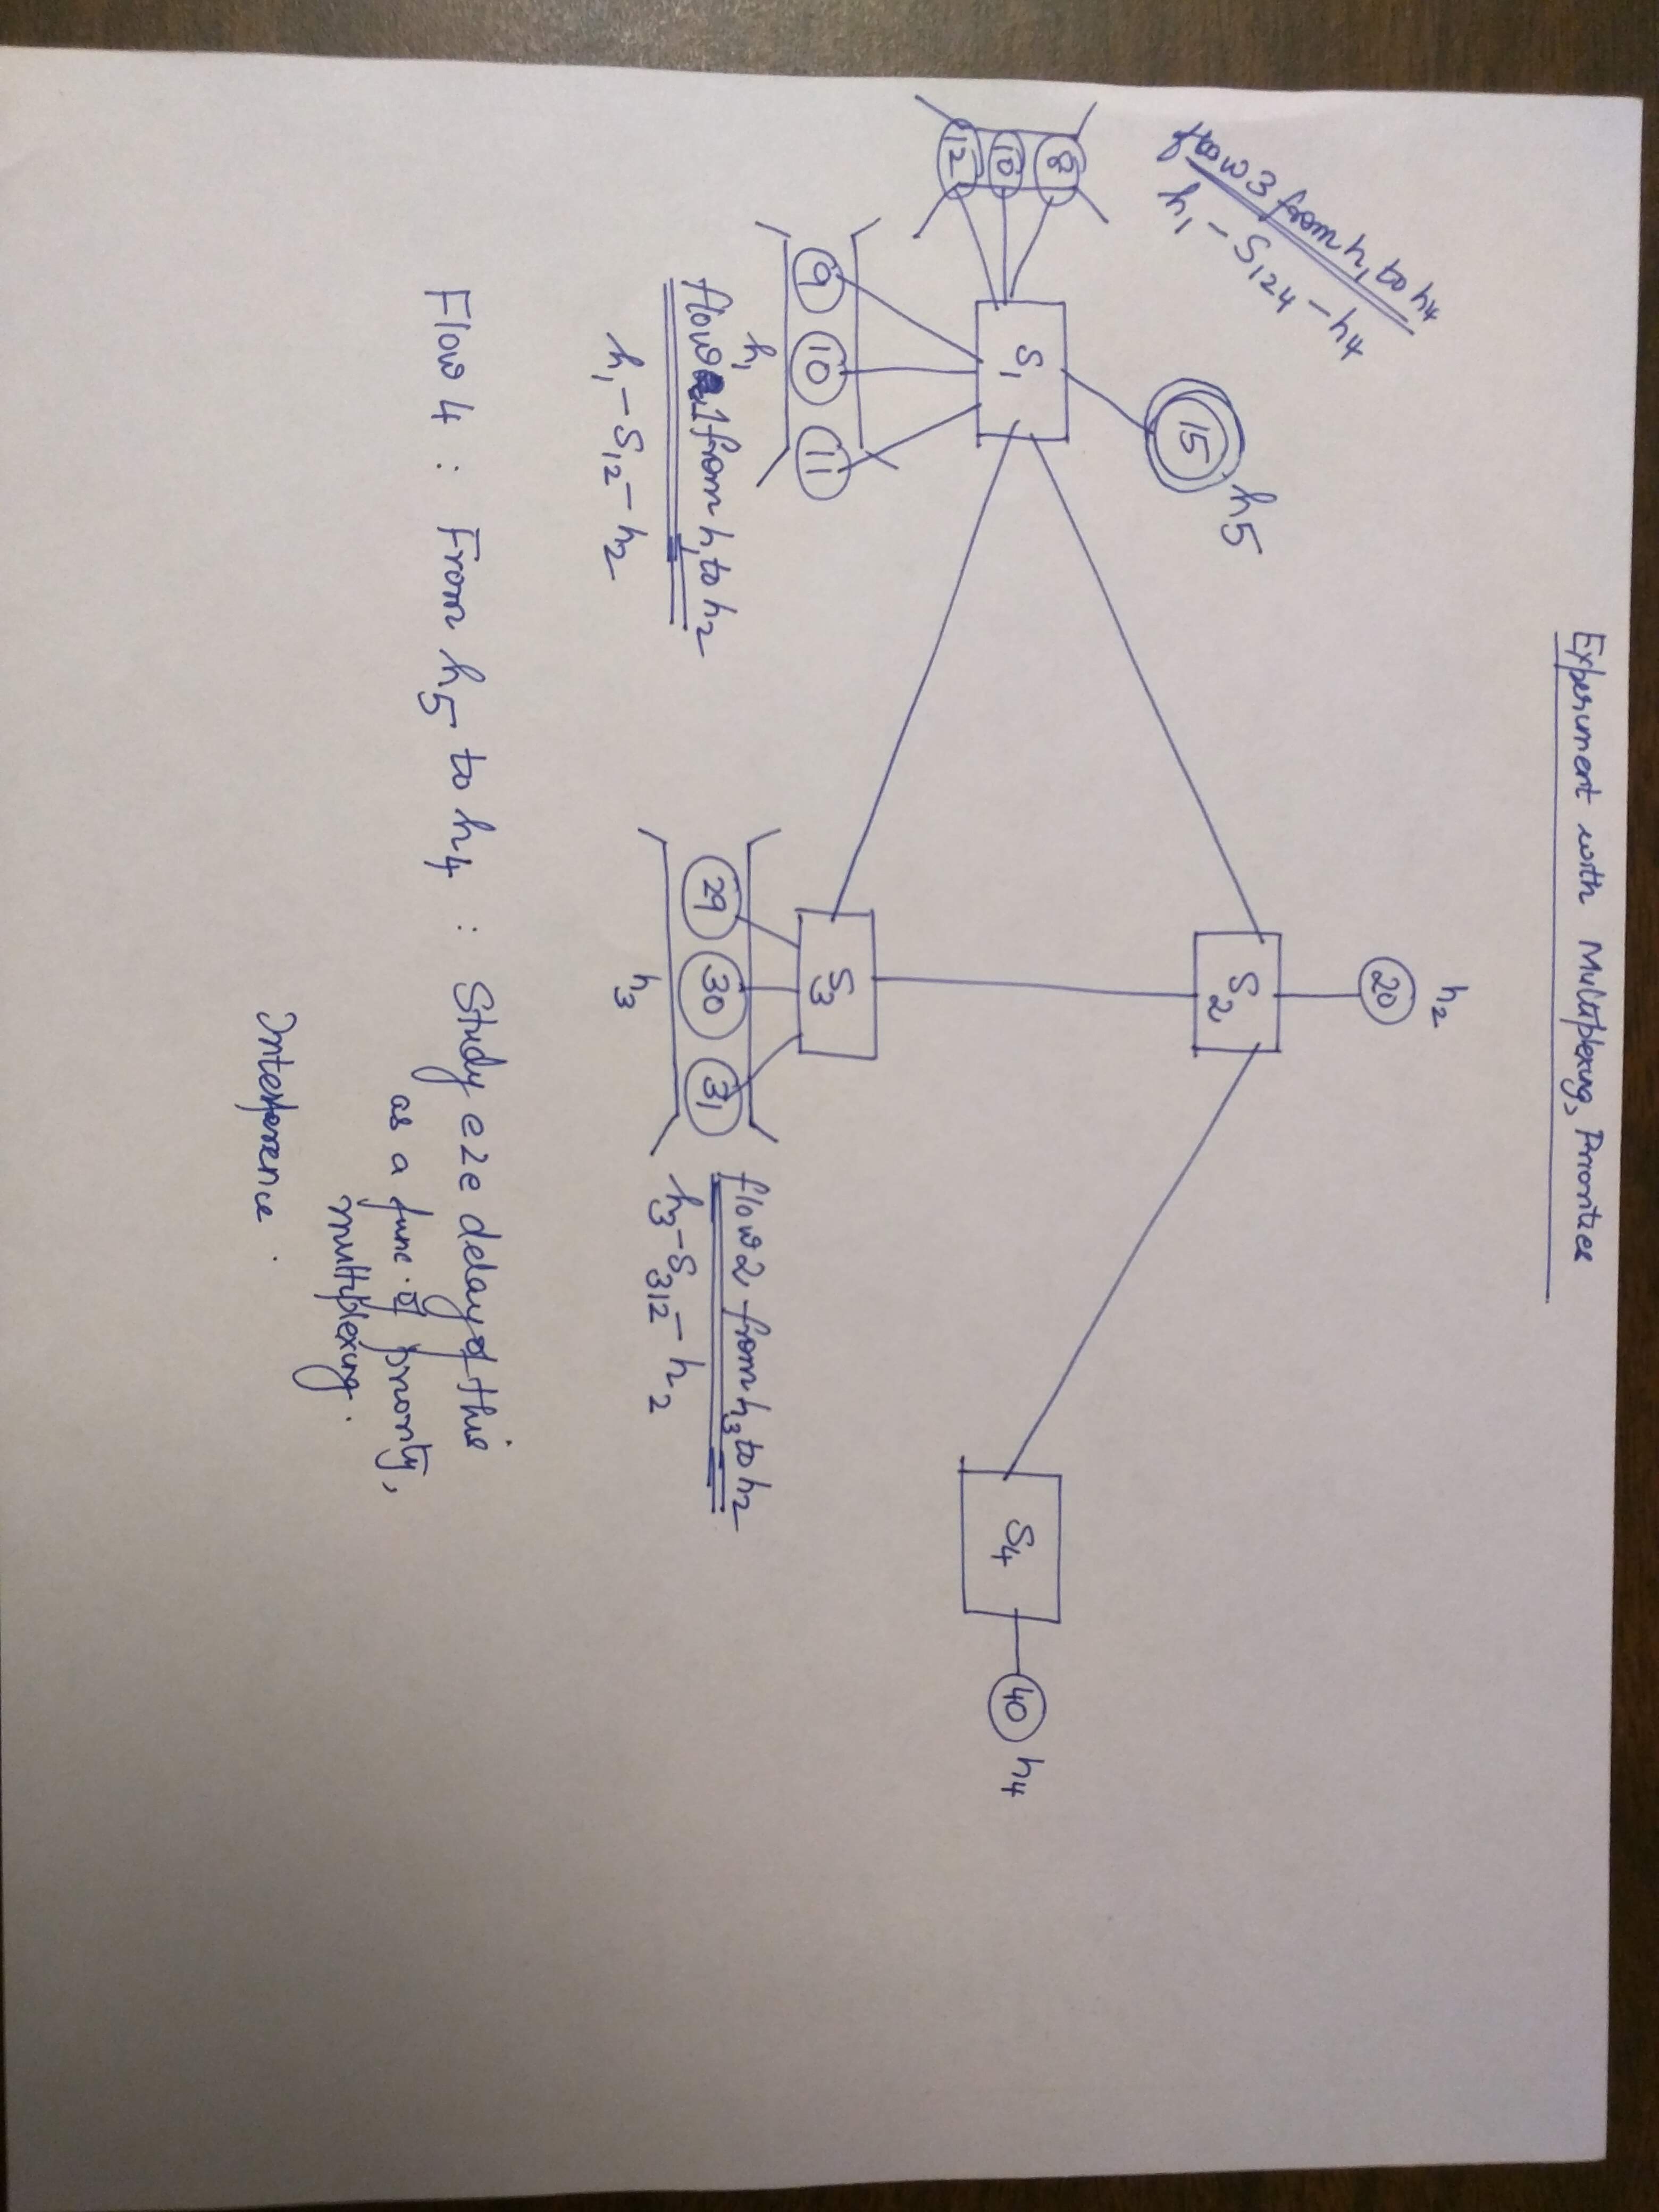 Experiment with Multiplexing, Priorities
h2
20
S2
flow 3 from h1 to h4
h1 - S124 - h4
h5
15
8
10
12
S1
S4
40
h4
9 10 11
h1
flow 1 from h1 to h2
h1 - S12 - h2
S3
29 30 31
h3
flow 2 from h3 to h2
h3 - S312 - h2
Flow 4 : From h5 to h4 : Study e2e delay of this
as a func. of priority,
multiplexing.
Interference .